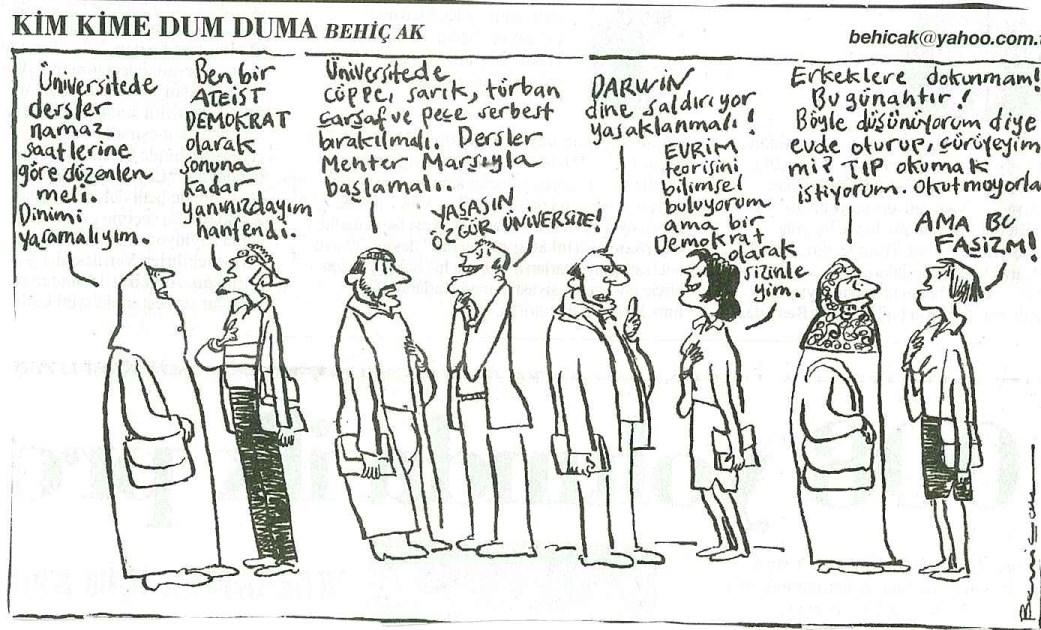 KİM KİME DUM DUMA BEHİÇ AK
behicak@yahoo.com.t
Üniversitede
dersler
namaz
saatlerine
göre düzenlen
meli.
Dinimi
yaşamalıyım.
Ben bir
ATEİST
DEMOKRAT
olarak
sonuna
kadar
yanınızdayım
hanfendi.
Üniversitede
cüppe, sarık, türban
çarşaf ve peçe serbest
bırakılmalı. Dersler
Mehter Marşıyla
başlamalı.
YAŞASIN
ÖZGÜR ÜNİVERSİTE!
DARWİN
dine saldırıyor
yasaklanmalı!
EVRİM
teorisini
bilimsel
buluyorum
ama bir
Demokrat
olarak
sizinle
yim.
Erkeklere dokunmam!
Bu günahtır!
Böyle düşünüyorum diye
evde oturup, çürüyeyim
mi? TIP okumak
istiyorum. Okutmuyorla
AMA BU
FAŞİZM!
Behiç Ak